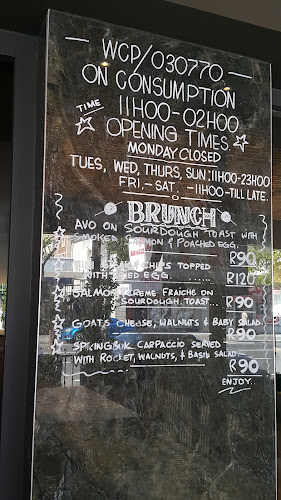 WCP/030770
ON CONSUMPTION
TIME 11H00-02H00
OPENING TIMES
MONDAY CLOSED
TUES, WED, THURS, SUN: 11H00-23H00
FRI,- SAT, -11H00-TILL LATE.
BRUNCH
AVO ON SOURDOUGH TOAST WITH
SMOKED SALMON & POACHED EGG.
R90
CHIPS TOPPED
WITH FRIED EGG. ....... R120
SALMON, CREME FRAICHE ON
SOURDOUGH TOAST.. R90
GOATS CHEESE, WALNUTS & BABY SALAD
R90
SPRINGBUK CARPACCIO SERVED
WITH ROCKET, WALNUTS, & BASIL SALAD. R90
ENJOY..